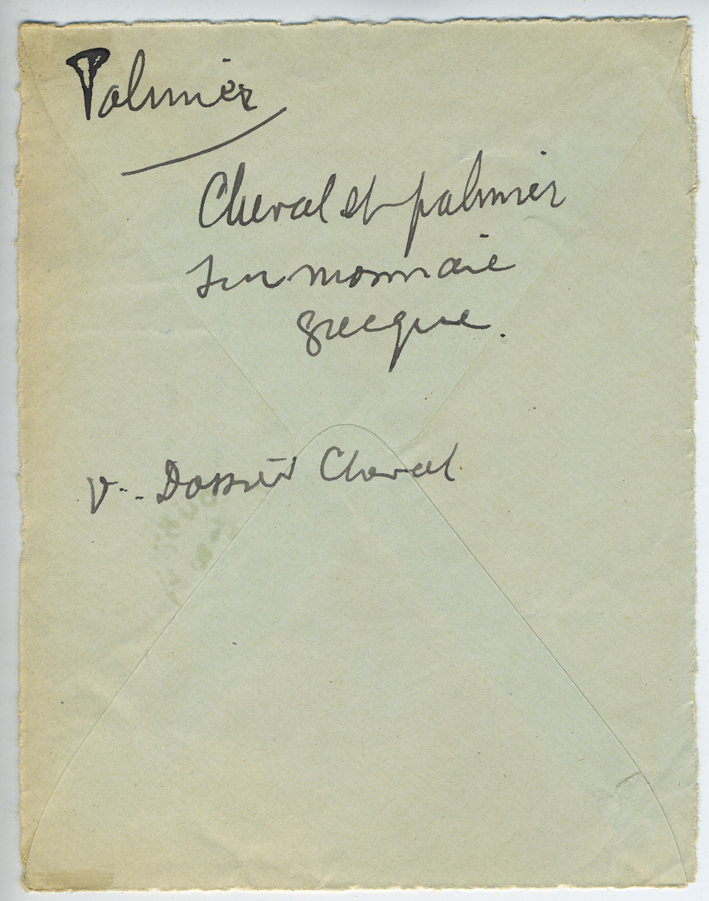 Palmier
Cheval et palmier
sur monnaie
grecque.
V. Dossier Cheval